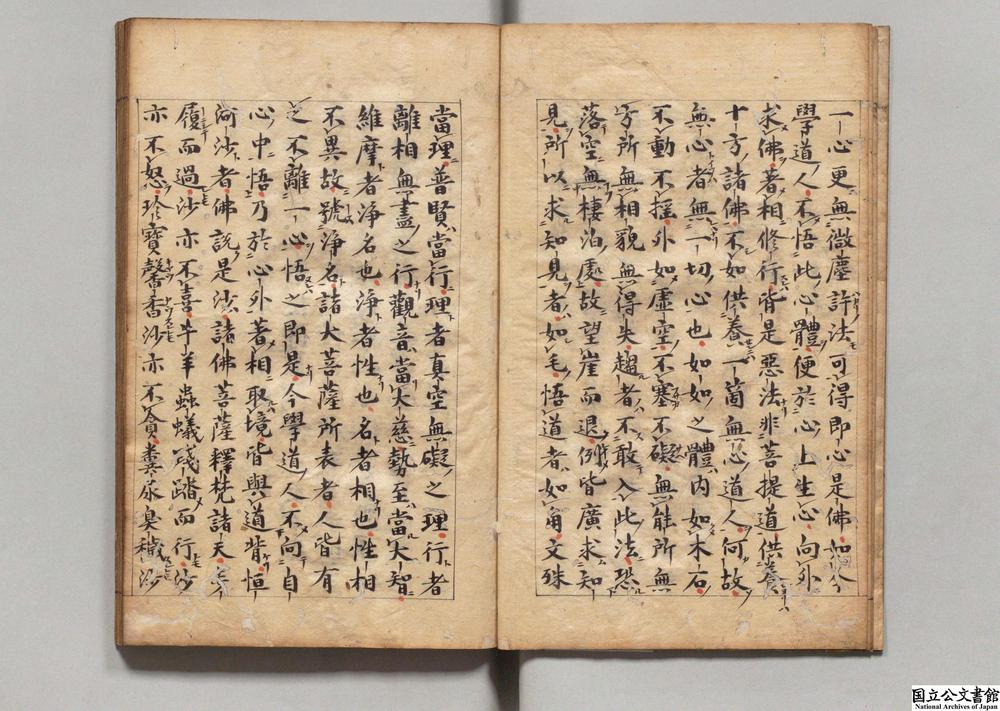 一心更無微塵許法可得即心是佛如今
學道人不悟此心體便於心上生心向外
求佛著相修行皆是惡法非菩提道供養
十方諸佛不如供養一箇無心道人何故
無心者無一切心也如如之體內如木石
不動不摇外如虛空不塞不礙無能所無
方所無相貌無得失趨者不敢入此法恐
落空無棲泊處故望崖而退例皆廣求知
見所以求知見者如毛悟道者如角文殊
當理普賢當行理者真空無礙之理行者
離相無盡之行觀音當大慈勢至當大智
維摩者淨名也淨者性也名者相也性相
不異故號淨名諸大菩薩所表者人皆有
之不離一心悟之即是今學道人不向自
心中悟乃於心外著相取境皆與道背恒
河沙者佛說是沙諸佛菩薩釋梵諸天步
履而過沙亦不喜牛羊蟲蟻踐踏而行沙
亦不怒珍寶馨香沙亦不貪糞尿臭穢沙
国立公文書館
National Archives of Japan